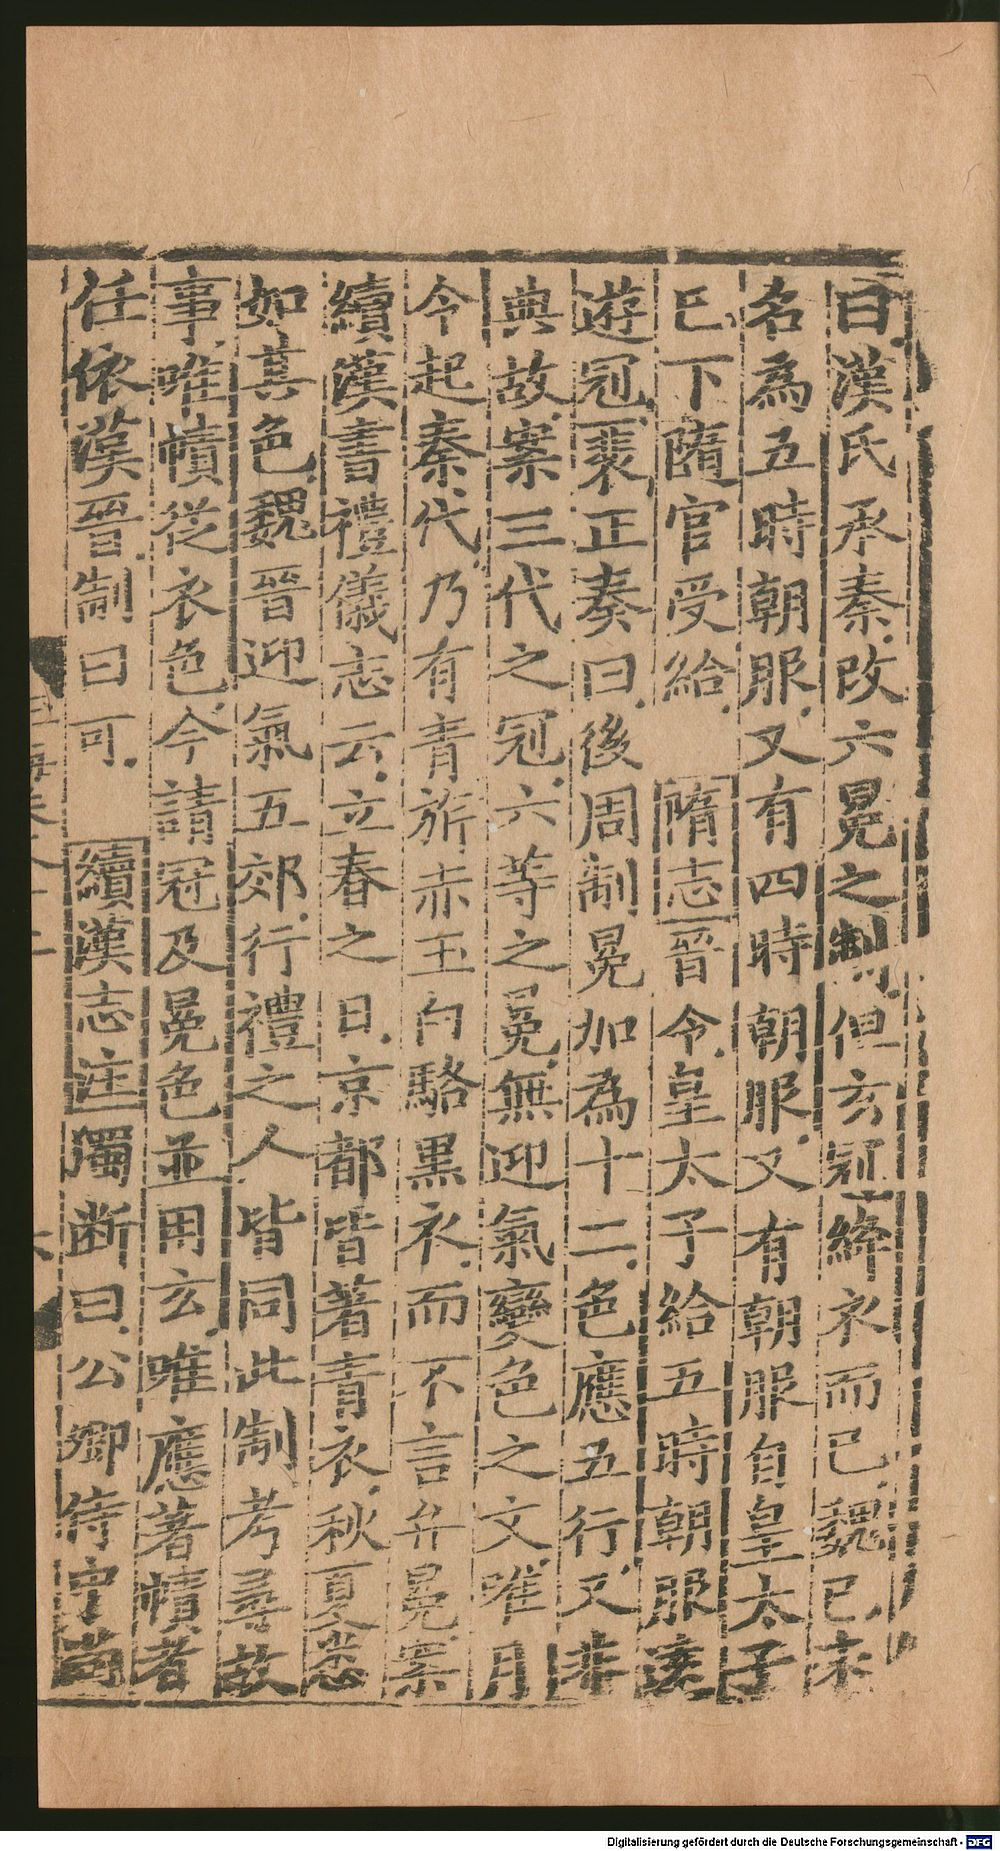 曰漢氏承秦改六冕之制但玄冠絳衣而已魏已來
名為五時朝服又有四時朝服又有朝服自皇太子
已下隨官受給 隋志晉令皇太子給五時朝服遠
遊冠裴正奏曰後周制冕加為十二色應五行又非
典故案三代之冠六等之冕無迎氣變色之文唯月
令起秦代乃有青旂赤玉白駱黑衣而不言弁冕案
續漢書禮儀志云立春之日京都皆著青衣秋夏悉
如其色魏晉迎氣五郊行禮之人皆同此制考尋故
事唯幘從衣色今請冠及冕色並用玄唯應著幘者
任依漢晉制曰可 續漢志注獨斷曰公卿侍中尚
Digitalisierung gefördert durch die Deutsche Forschungsgemeinschaft - DFG